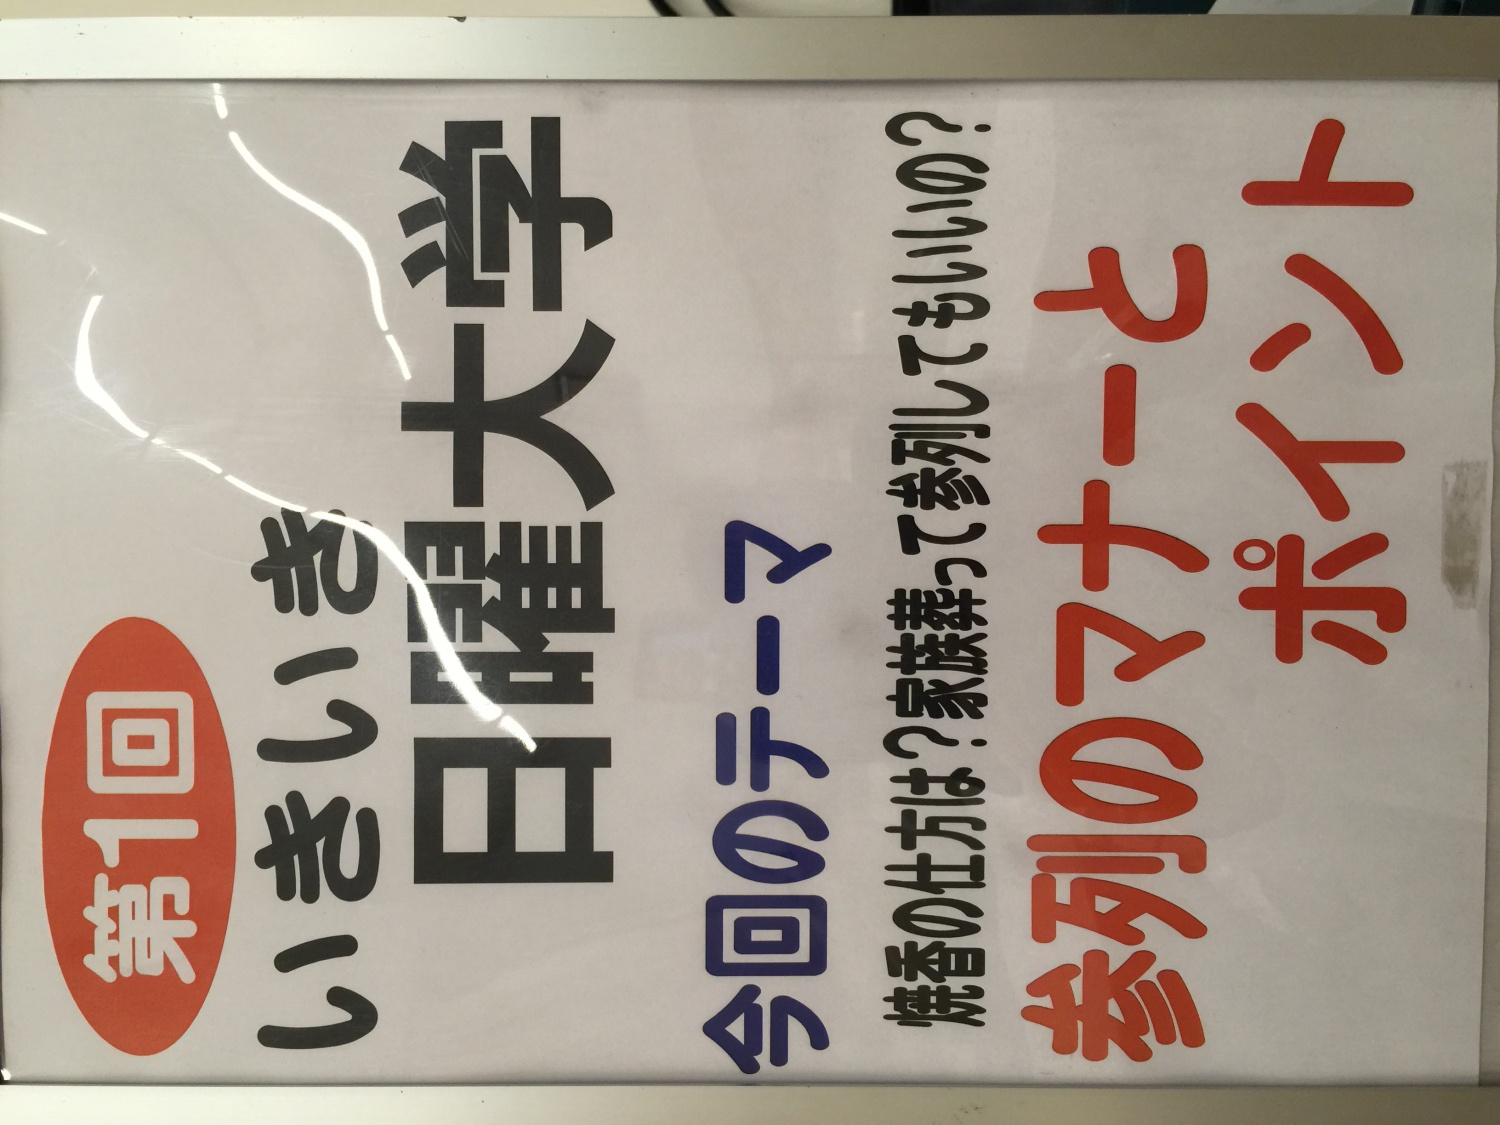 第1回
いきいき
日曜大学
今回のテーマ
焼香の仕方は?家族葬って参列してもいいの?
参列のマナーと
ポイント